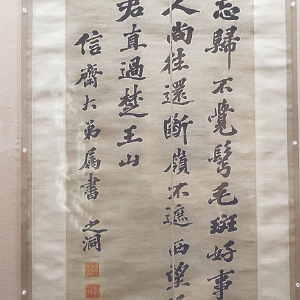 忘歸不覺鬢毛斑好事
人尚往還斷嶺不遮西望
君直過楚王山
信齋大弟屬書 之洞